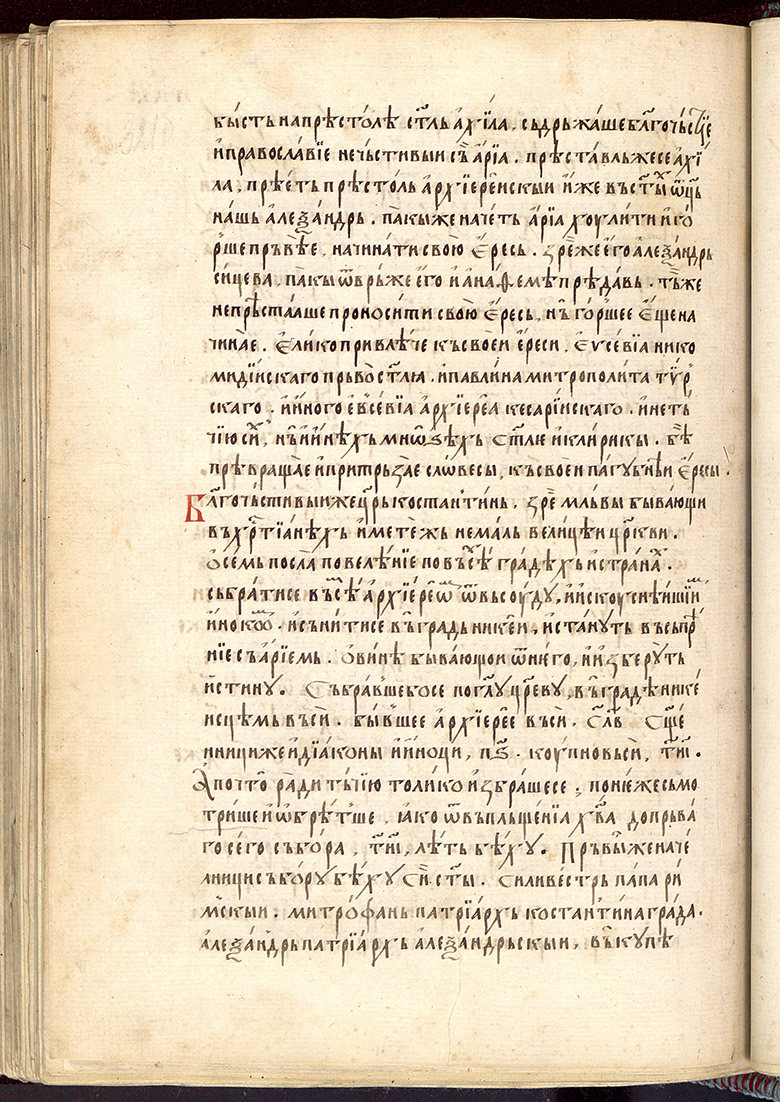 бы́сть на прѣсто́лѣ ст҃ль а҆хїла. съдръжа́ше бл҃гочьс̑їе
и҆ православїе нечьстивыи съ а҆рїа. прѣста́вльжесе а҆хї
ла, прїе́ть прѣсто́ль а҆рхїерейскыи и҆же въ ст҃ы̑х ѿц҃ь
на́шь а҆леѯа́ндрь. па́кыже наче́ть а҆рїа хоули́ти и҆ го́
р̑ше пръвѣе, начина́ти свою̀ е҆ресь. зре́же е҆го̀ а҆леѯа́ндрь
си́цева. па́кы ѿвръже е҆го̀ и҆ а҆на́ѳемѣ прѣда́вь. тъже
непрѣстаа́ше проноси́ти свою̀ е҆ресь, нь го́ршее е҆ще на
чина́е. е҆ли́ко привлѣ́че къ своеи е҆реси. е҆ѵсе́вїа нико
миди́искаго пръвост҃лꙗ. и҆ павли́на митрополи́та ти̑р
скаго. и҆ и҆ного е҆ѵсе́вїа а҆рхїере́а кесарі́искаго. и҆ не ть
чїю си̑х, нь и҆ и҆нѣхь мно́ѕѣхь ст҃лїе и҆ кли́рикы. бе
прѣвраща́е и҆ притръза́е сло́весы, къ своеи па́губнѣи е҆ресы.
Бл҃гочьстивыи же цр҃ь костаньти́нь. зре̑ млъвы быва́ющи
въ хр҃тїа́нѣхь и҆ мете́жь нема́ль вели́цѣи цр҃кви.
ѻ҆ се́мь посла̀ повелѣ́нїе по въсе́ гра́дѣхь и҆ страна̑х.
събра́тисе въсѣ̑м а҆рхїере́ѡ̑м ѿвьсоу́ду, и҆ и҆скоуснѣи́шїи̑м
и҆ноко̑м. и҆ сьни́тисе въ гра́дь нике́и, и҆ ста́нуть въ съпр҃
нїе съ а҆рїемь. ѻ҆ винѣ быва́ющои ѿ него, и҆ и҆зберу́ть
и҆стину. Събра́вшебосе по гл҃у цр҃еву, въ гра́дѣ нике́
и҆сце́мь въсѝ. бы́вшее а҆рхїере́е въсѝ. сл҃в. сщ҃е
нници же и҆ дїа́коны и҆ и҆ноци, пѕ҃. коу́пно въсѝ, ти҃і.
А҆ почто̀ ра́ди тъчїю толи́ко и҆збра́шесе, поне́же съмо
три́ше и҆ ѡ҆брѣт̑ше, ꙗ҆ко ѿ въплъще́нїа хв҃а до пръва́
го сего събо́ра, ти҃і, лѣть бѣхꙋ. Пръвы̑ же наче́
лници събору бѣхꙋ сїи ст҃ы. Силивестрь папа ри́
мскыи. митрофа́нь патрїа́рхь костаньти́на гра́да.
а҆леѯа́ндрь патрїа́рхь а҆леѯа́ндрьскыи, въ ку́пѣ